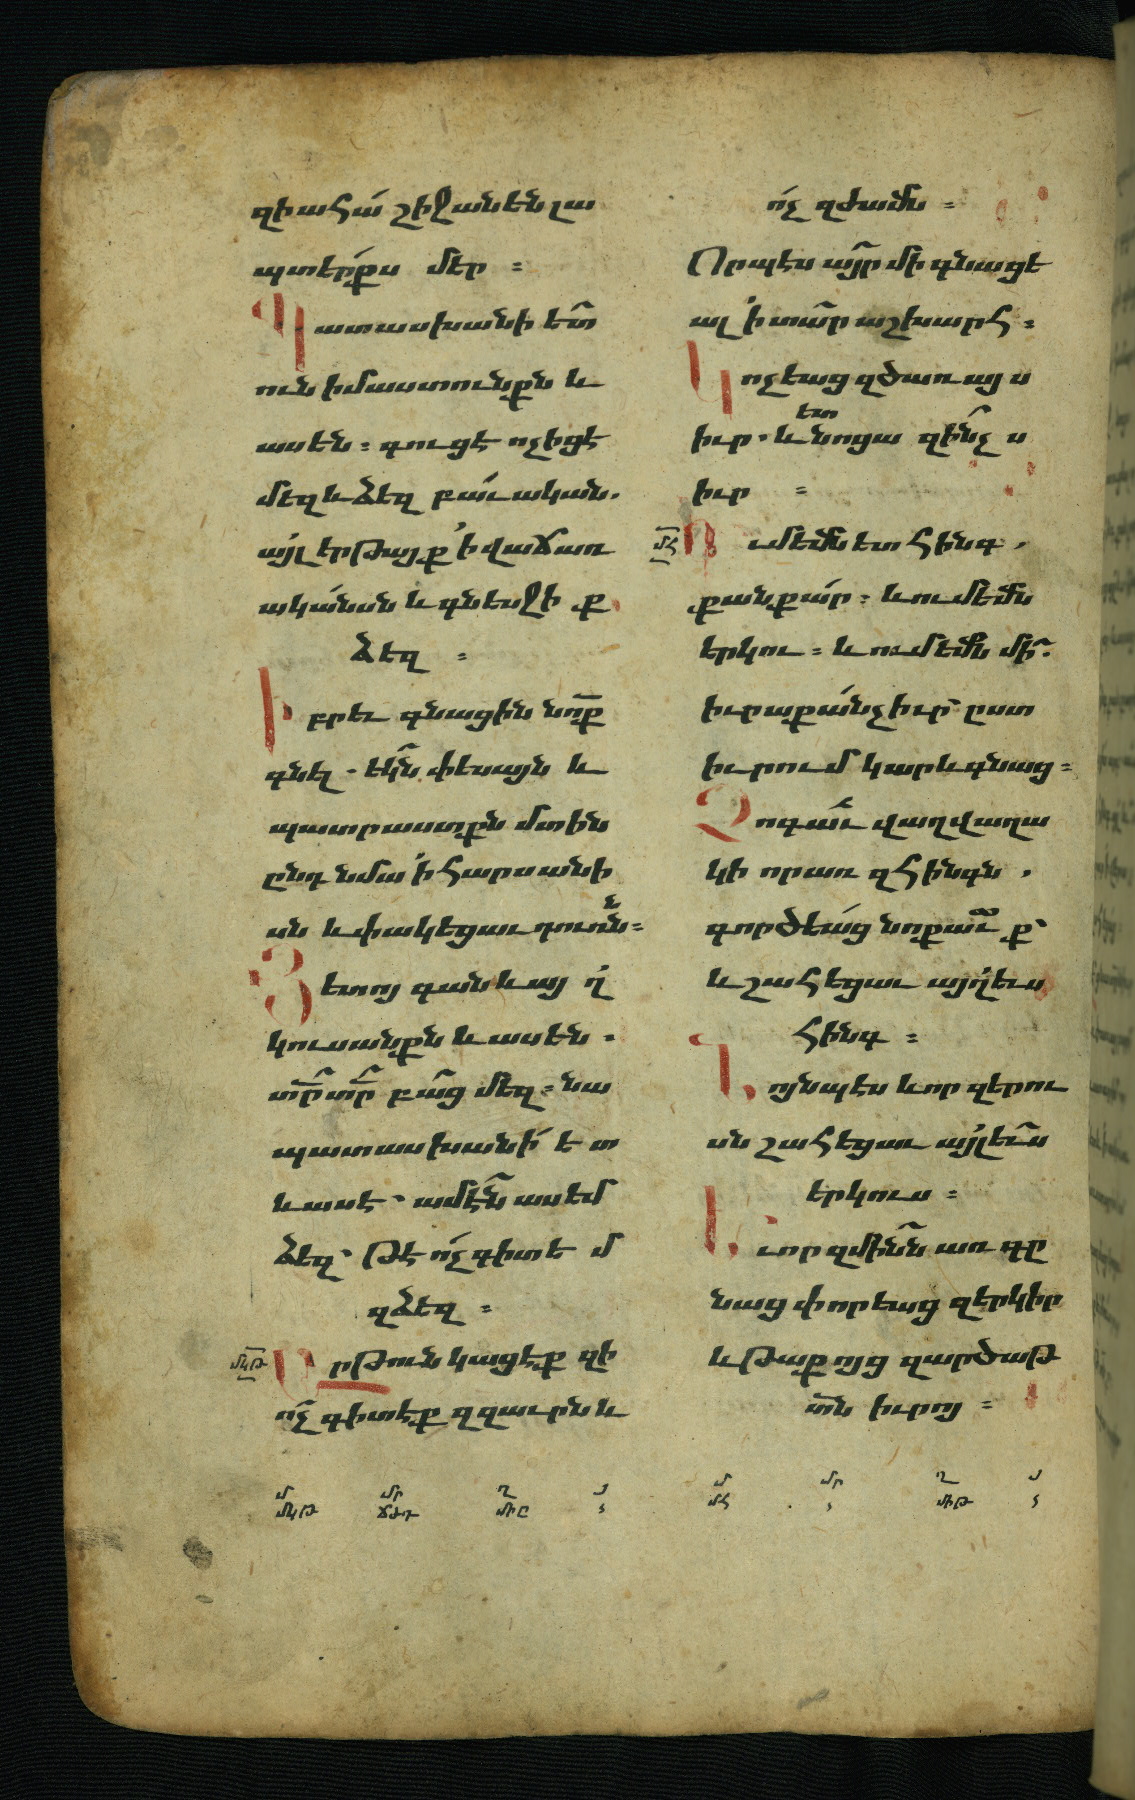 զի ահա՛ շիջանեն լա
պտե՛րքս մեր ։
Պատասխանի ետ՞
ուն իմաստունքն և
ասեն ։ գուցէ ոչ իցէ
մեզ և ձեզ բա՛ւական.
ա՛յլ երթայք ՚ի վաճառ
ակա՛նսն և գնեսջի ք
ձեզ ։
Իբրեւ գնացին նո՞ք
գնել . եկ՞ն փեսայն և
պատրաստքն մտին
ընդ նմա ՚ի հարսանի
սն և փակեցաւ դուռ՞ն ։
Յետոյ գան և այ ղ՛
կուսանքն և ասեն .
տր՞ տր՞ բա՛ց մեզ ։ նա
պատասխանի՛ ե տ
և ասէ ՝ ամէ՞ն ասեմ
ձեզ ՝ թէ ո՛չ գիտե մ
զձեզ ։
մկթ Արթուն կացէք զի
ո՛չ գիտէք զզաւրն և
մ մր ղ յ
մկթ ճժդ միը ՟
ո՛չ զժամն ։
Որպէս ա՞յր մի գնացե
ալ ՚ի տա՞ր աշխարհ ։
Կոչեաց զծառայ ս
իւր . և ետ նոցա զի՞նչ ս
իւր ։
մհ Ումեմն ետ հինգ .
քանքա՛ր ։ և ումեմն
երկու ։ և ումեմն մի՞.
իւրաքա՛նչիւր ՝ ըստ
իւրում կարև գնաց ։
Չոգա՛ւ վաղվաղա
կի որ առ զհինգն .
գործեա՛ց նոքաւ՞ ք ՝
և շահեցաւ այղ՛եւս
հինգ ։
Նոյնպէս և որ զերկու
սն շահեցաւ այլե՞ս
երկուս ։
Եւ որ զմի՞նն առ գը
նաց փորեաց զերկիր
և թաքոյց զարծաթ
տ՞ն իւրոյ ։
մ մր ղ յ
մհ ՟ միթ ՟